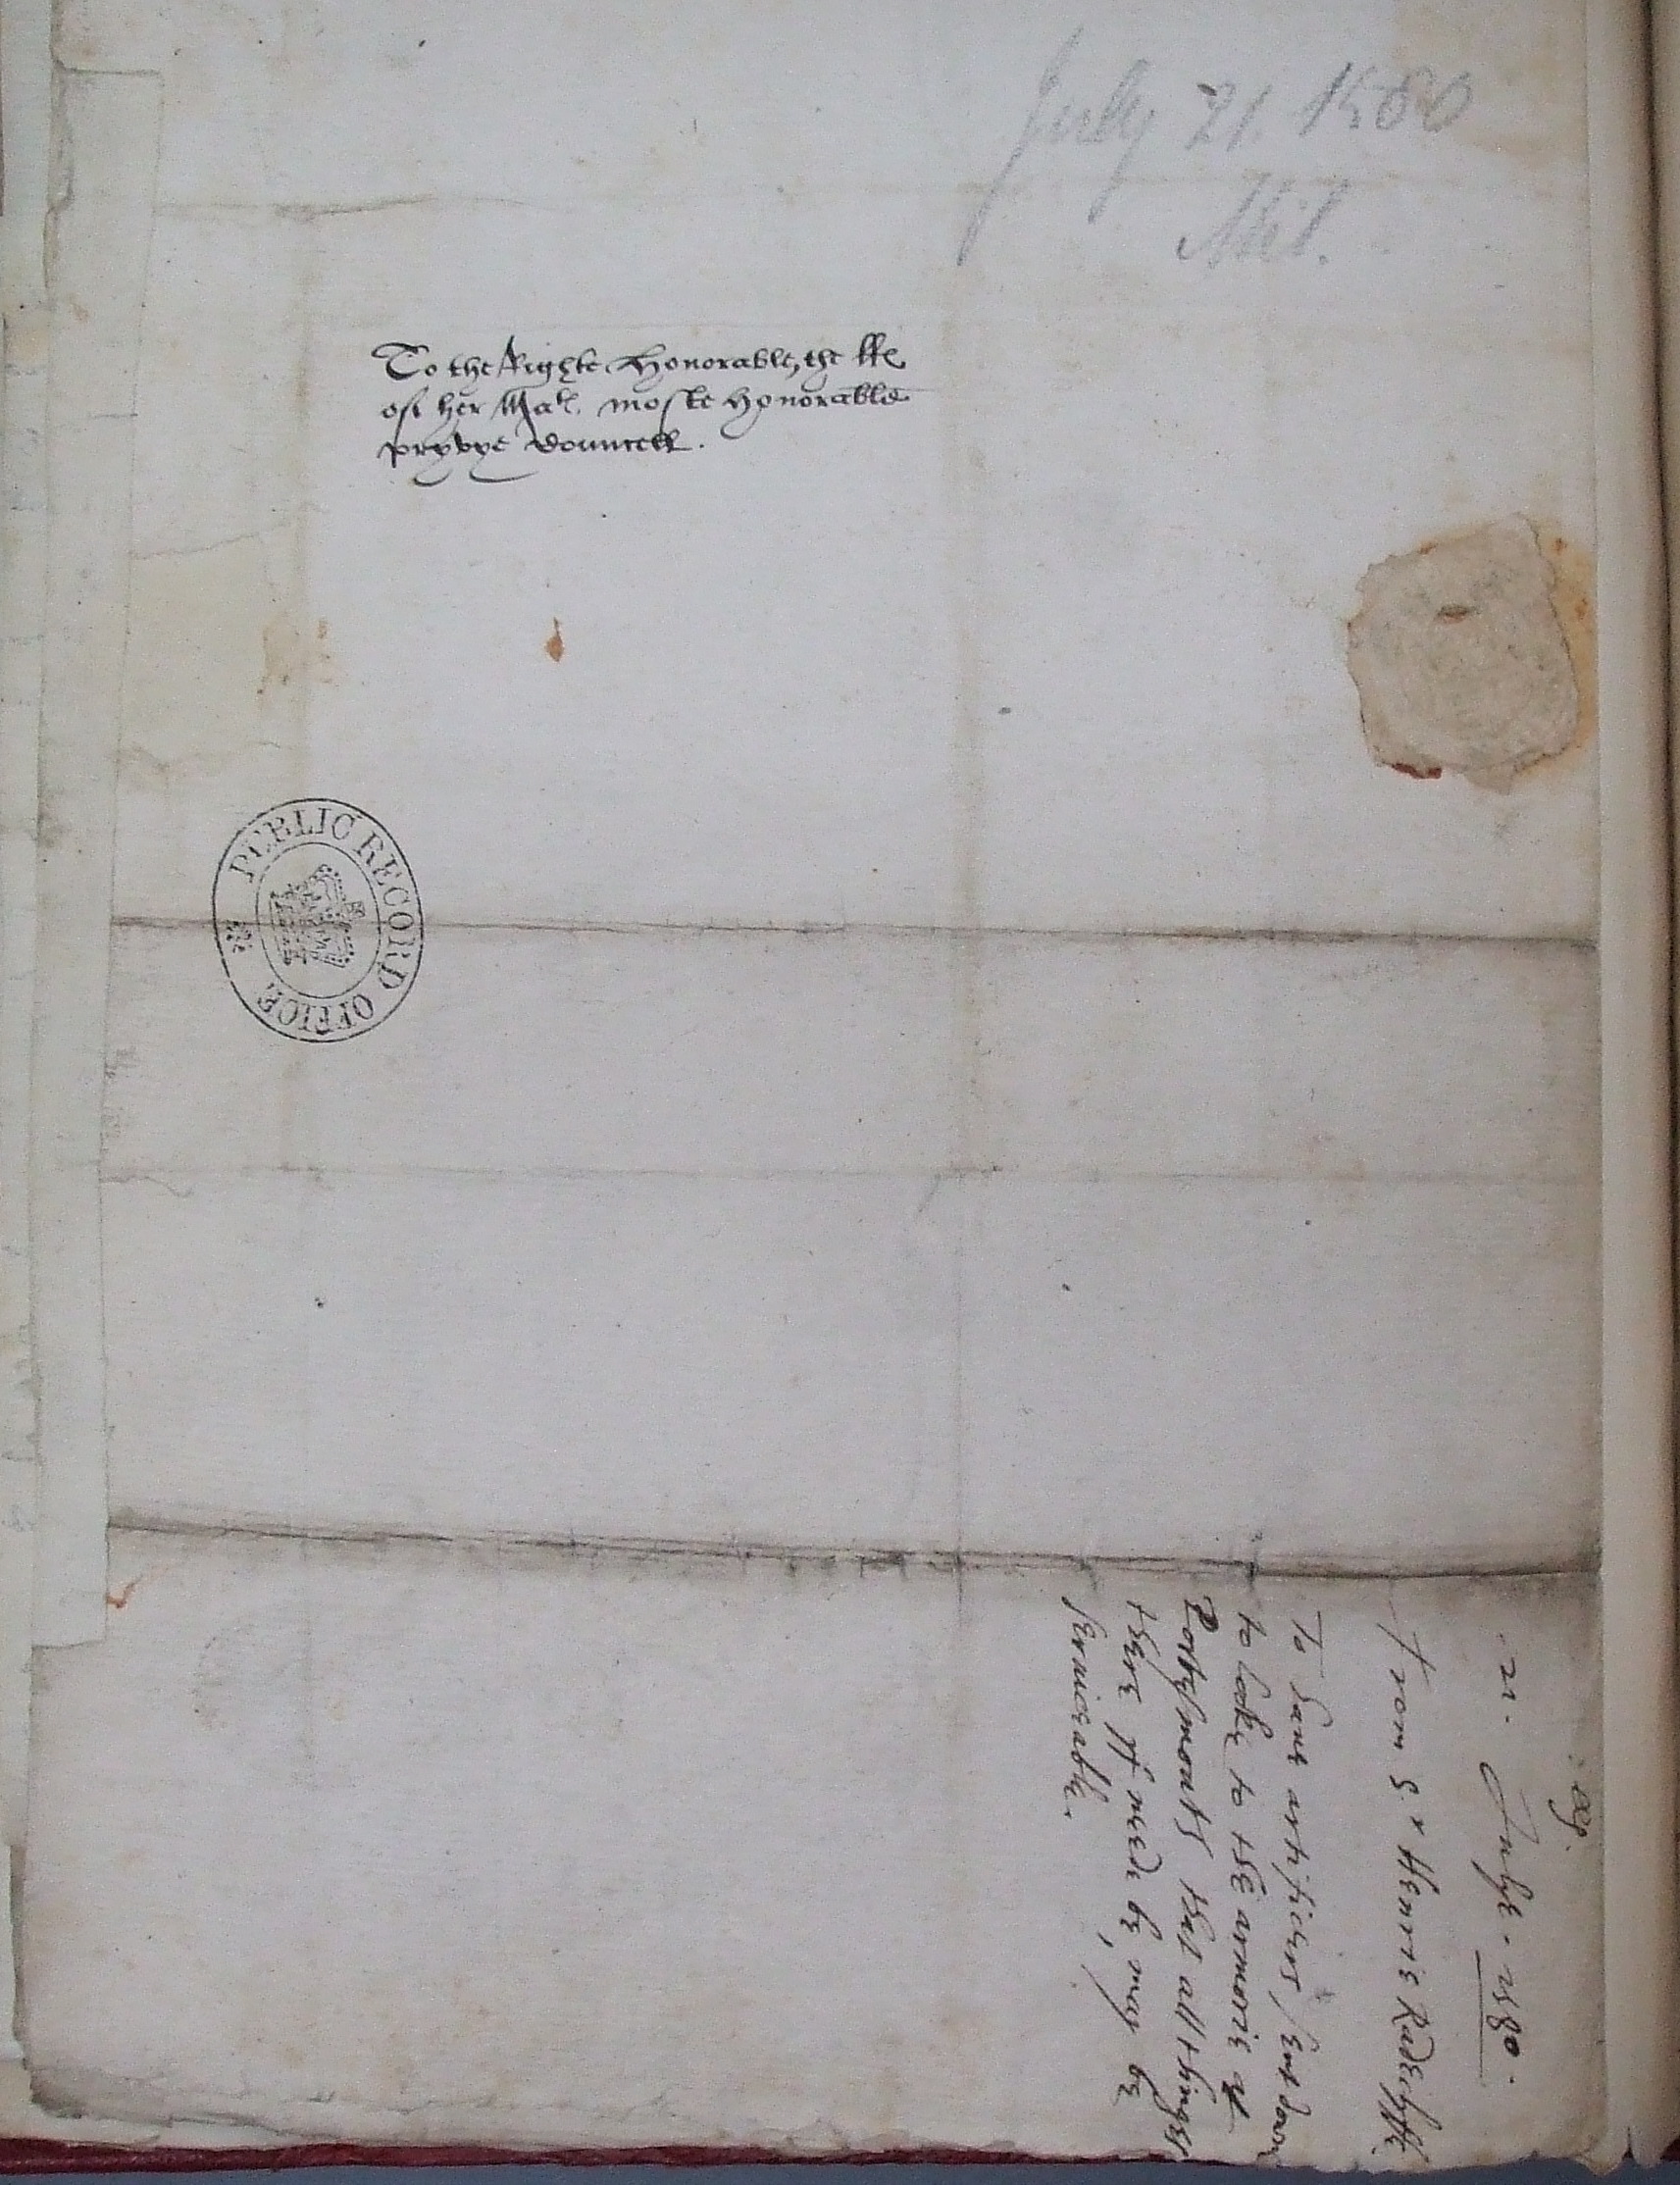 July 21. 1580
Mil.
To the Righte Honorable, the LLs
of her Mats. moste Honorable
pryvye Councell.
PUBLIC RECORD OFFICE
21. Julye. 1580.
From Sr Henrie Radeclyffe
To haue artificers sent down
to looke to the armorie at
Portesmouth that all thinges
there if neede be, may be
seruiceable.